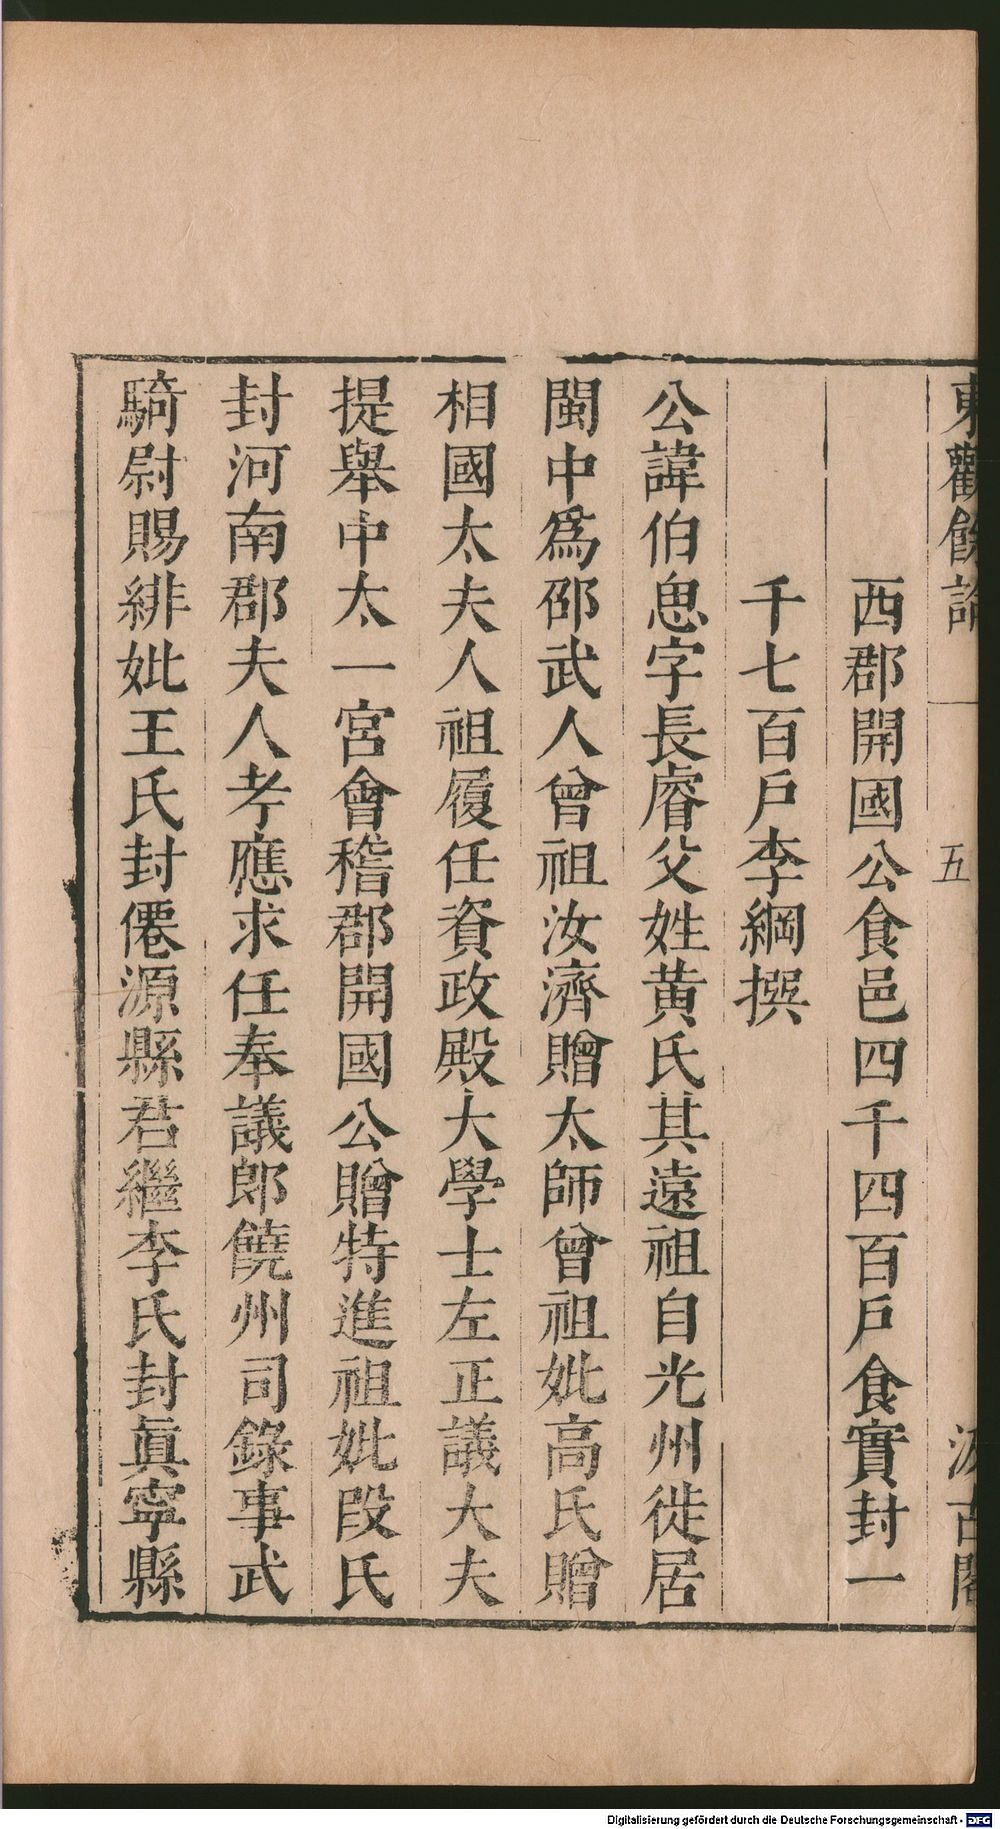 東觀餘論 五 汲古閣
西郡開國公食邑四千四百戶食實封一
千七百戶李綱撰
公諱伯思字長睿父姓黃氏其遠祖自光州徙居
閩中爲邵武人曾祖汝濟贈太師曾祖妣高氏贈
相國太夫人祖履任資政殿大學士左正議大夫
提舉中太一宮會稽郡開國公贈特進祖妣段氏
封河南郡夫人考應求任奉議郎饒州司錄事武
騎尉賜緋妣王氏封僊源縣君繼李氏封眞寧縣
Digitalisierung gefördert durch die Deutsche Forschungsgemeinschaft - DFG